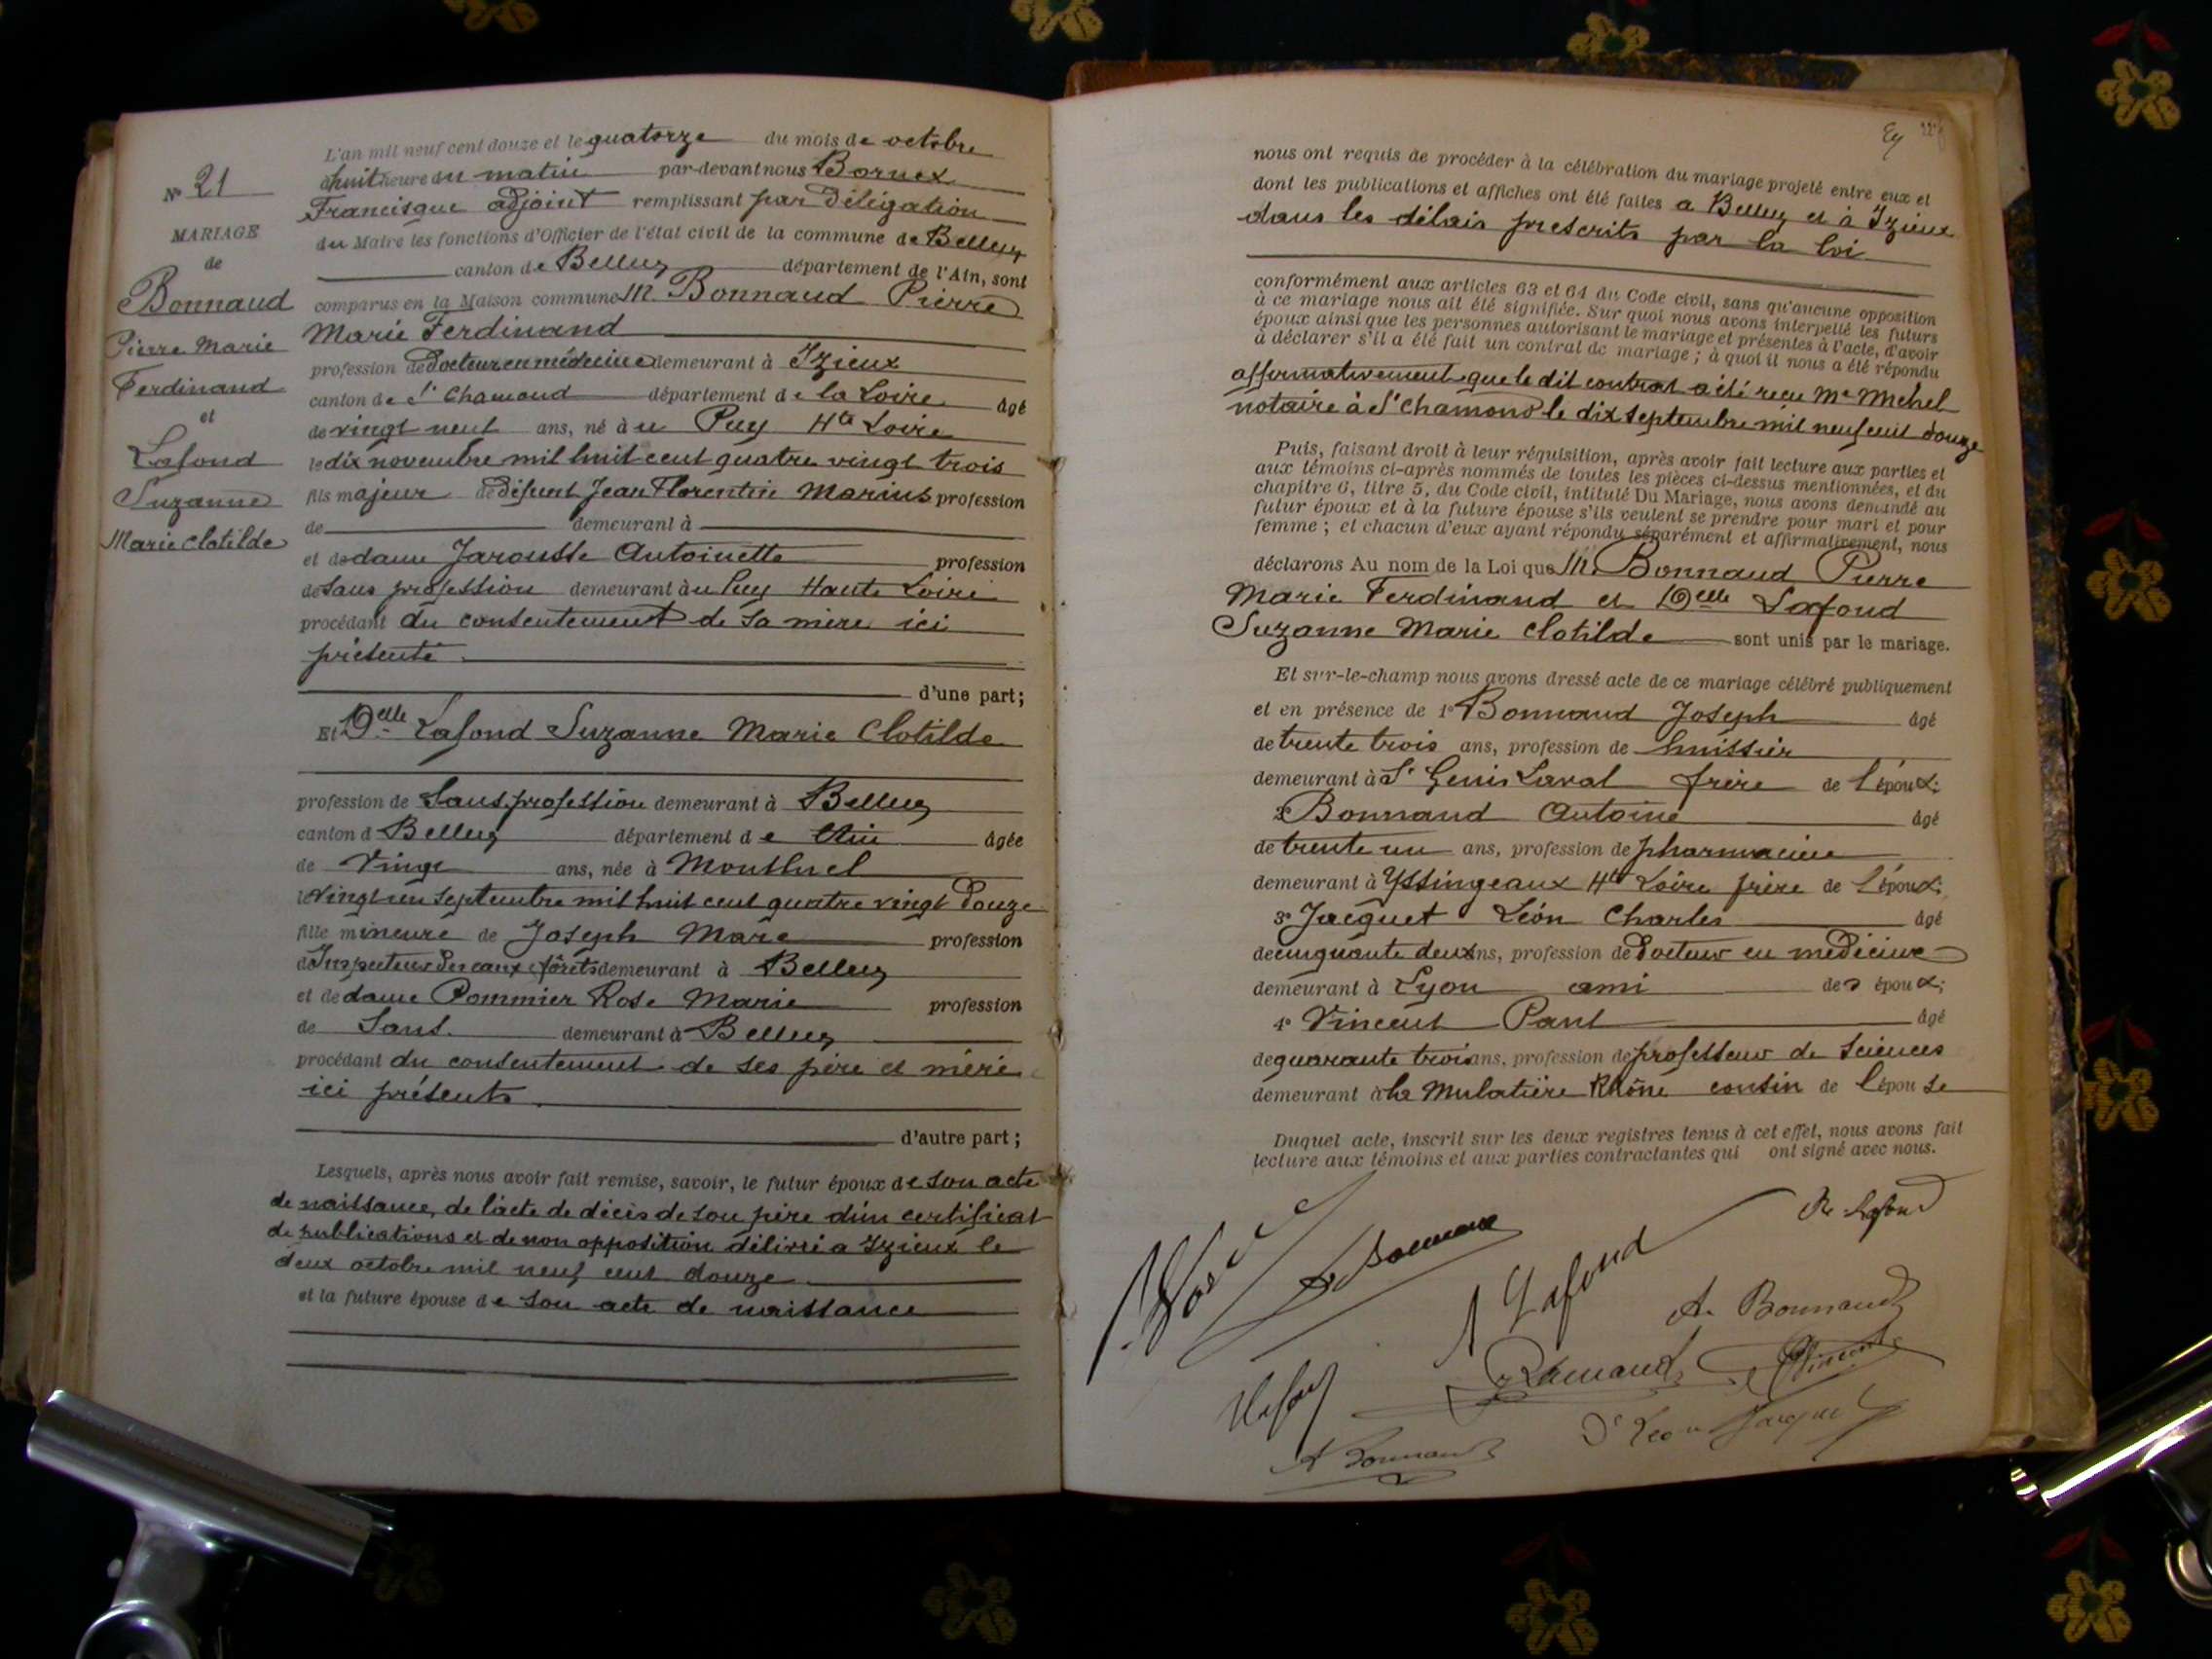 N° 21
MARIAGE
de
Bonnaud
Pierre Marie
Ferdinand
et
Lafond
Suzanne
Marie Clotilde
L'an mil neuf cent douze et le quatorze du mois de octobre
à huit heure du matin par-devant nous Bornex
Francisque adjoint remplissant par Délégation
du Maire les fonctions d'Officier de l'état civil de la commune de Belley
canton de Belley département de l'Ain, sont
comparus en la Maison commune M. Bonnaud Pierre
Marie Ferdinand
profession de Docteur en médecine demeurant à Izieux
canton de St Chamond département de la Loire âgé
de vingt neuf ans, né à u Puy Hte Loire
le dix novembre mil huit cent quatre vingt trois
fils majeur de défunt Jean Florentin Marius profession
de demeurant à
et de dame Jarousse Antoinette profession
de sans profession demeurant à u Puy Haute Loire
procédant du consentement de sa mère ici
présente
d'une part;
Et Delle Lafond Suzanne Marie Clotilde
profession de Sans profession demeurant à Belley
canton d Belley département d e Ain âgée
de Vingt ans, née à Montluel
le vingt un septembre mil huit cent quatre vingt Douze
fille mineure de Joseph Marc profession
d'Inspecteur Des eaux et forêts demeurant à Belley
et de dame Pommier Rose Marie profession
de Sans demeurant à Belley
procédant du consentement de ses père et mère
ici présents
d'autre part;
Lesquels, après nous avoir fait remise, savoir, le futur époux de son acte
de naissance, de l'acte de décès de son père d'un certificat
de publications et de non opposition délivré a Izieux le
deux octobre mil neuf cent douze
et la future épouse de son acte de naissance
nous ont requis de procéder à la célébration du mariage projeté entre eux et
dont les publications et affiches ont été faites a Belley et à Izieux
dans les délais prescrits par la loi
conformément aux articles 63 et 64 du Code civil, sans qu'aucune opposition
à ce mariage nous ait été signifiée. Sur quoi nous avons interpellé les futurs
époux ainsi que les personnes autorisant le mariage et présentes à l'acte, d'avoir
à déclarer s'il a été fait un contrat de mariage; à quoi il nous a été répondu
affirmativement que le dit contrat a été reçu Me Michel
notaire à St Chamond le dix septembre mil neuf cent douze
Puis, faisant droit à leur réquisition, après avoir fait lecture aux parties et
aux témoins ci-après nommés de toutes les pièces ci-dessus mentionnées, et du
chapitre 6, titre 5, du Code civil, intitulé Du Mariage, nous avons demandé au
futur époux et à la future épouse s'ils veulent se prendre pour mari et pour
femme; et chacun d'eux ayant répondu séparément et affirmativement, nous
déclarons Au nom de la Loi que M. Bonnaud Pierre
Marie Ferdinand et Delle Lafond
Suzanne Marie Clotilde sont unis par le mariage.
Et sur-le-champ nous avons dressé acte de ce mariage célébré publiquement
et en présence de 1° Bonnaud Joseph âgé
de trente trois ans, profession de huissier
demeurant à St Genis Laval frère de l'époux;
2° Bonnaud Antoine âgé
de trente un ans, profession de pharmacien
demeurant à Yssingeaux Hte Loire frère de l'époux;
3° Jacquet Léon Charles âgé
de cinquante deux ans, profession de Docteur en médecine
demeurant à Lyon ami des époux;
4° Vincent Paul âgé
de quarante trois ans, profession de professeur de Sciences
demeurant à la Mulatière Rhône cousin de l'épouse
Duquel acte, inscrit sur les deux registres tenus à cet effet, nous avons fait
lecture aux témoins et aux parties contractantes qui ont signé avec nous.
R. Lafond
Lafond
A. Bonnaud
Vincent
Dr Léon Jacquet
A Bonnaud